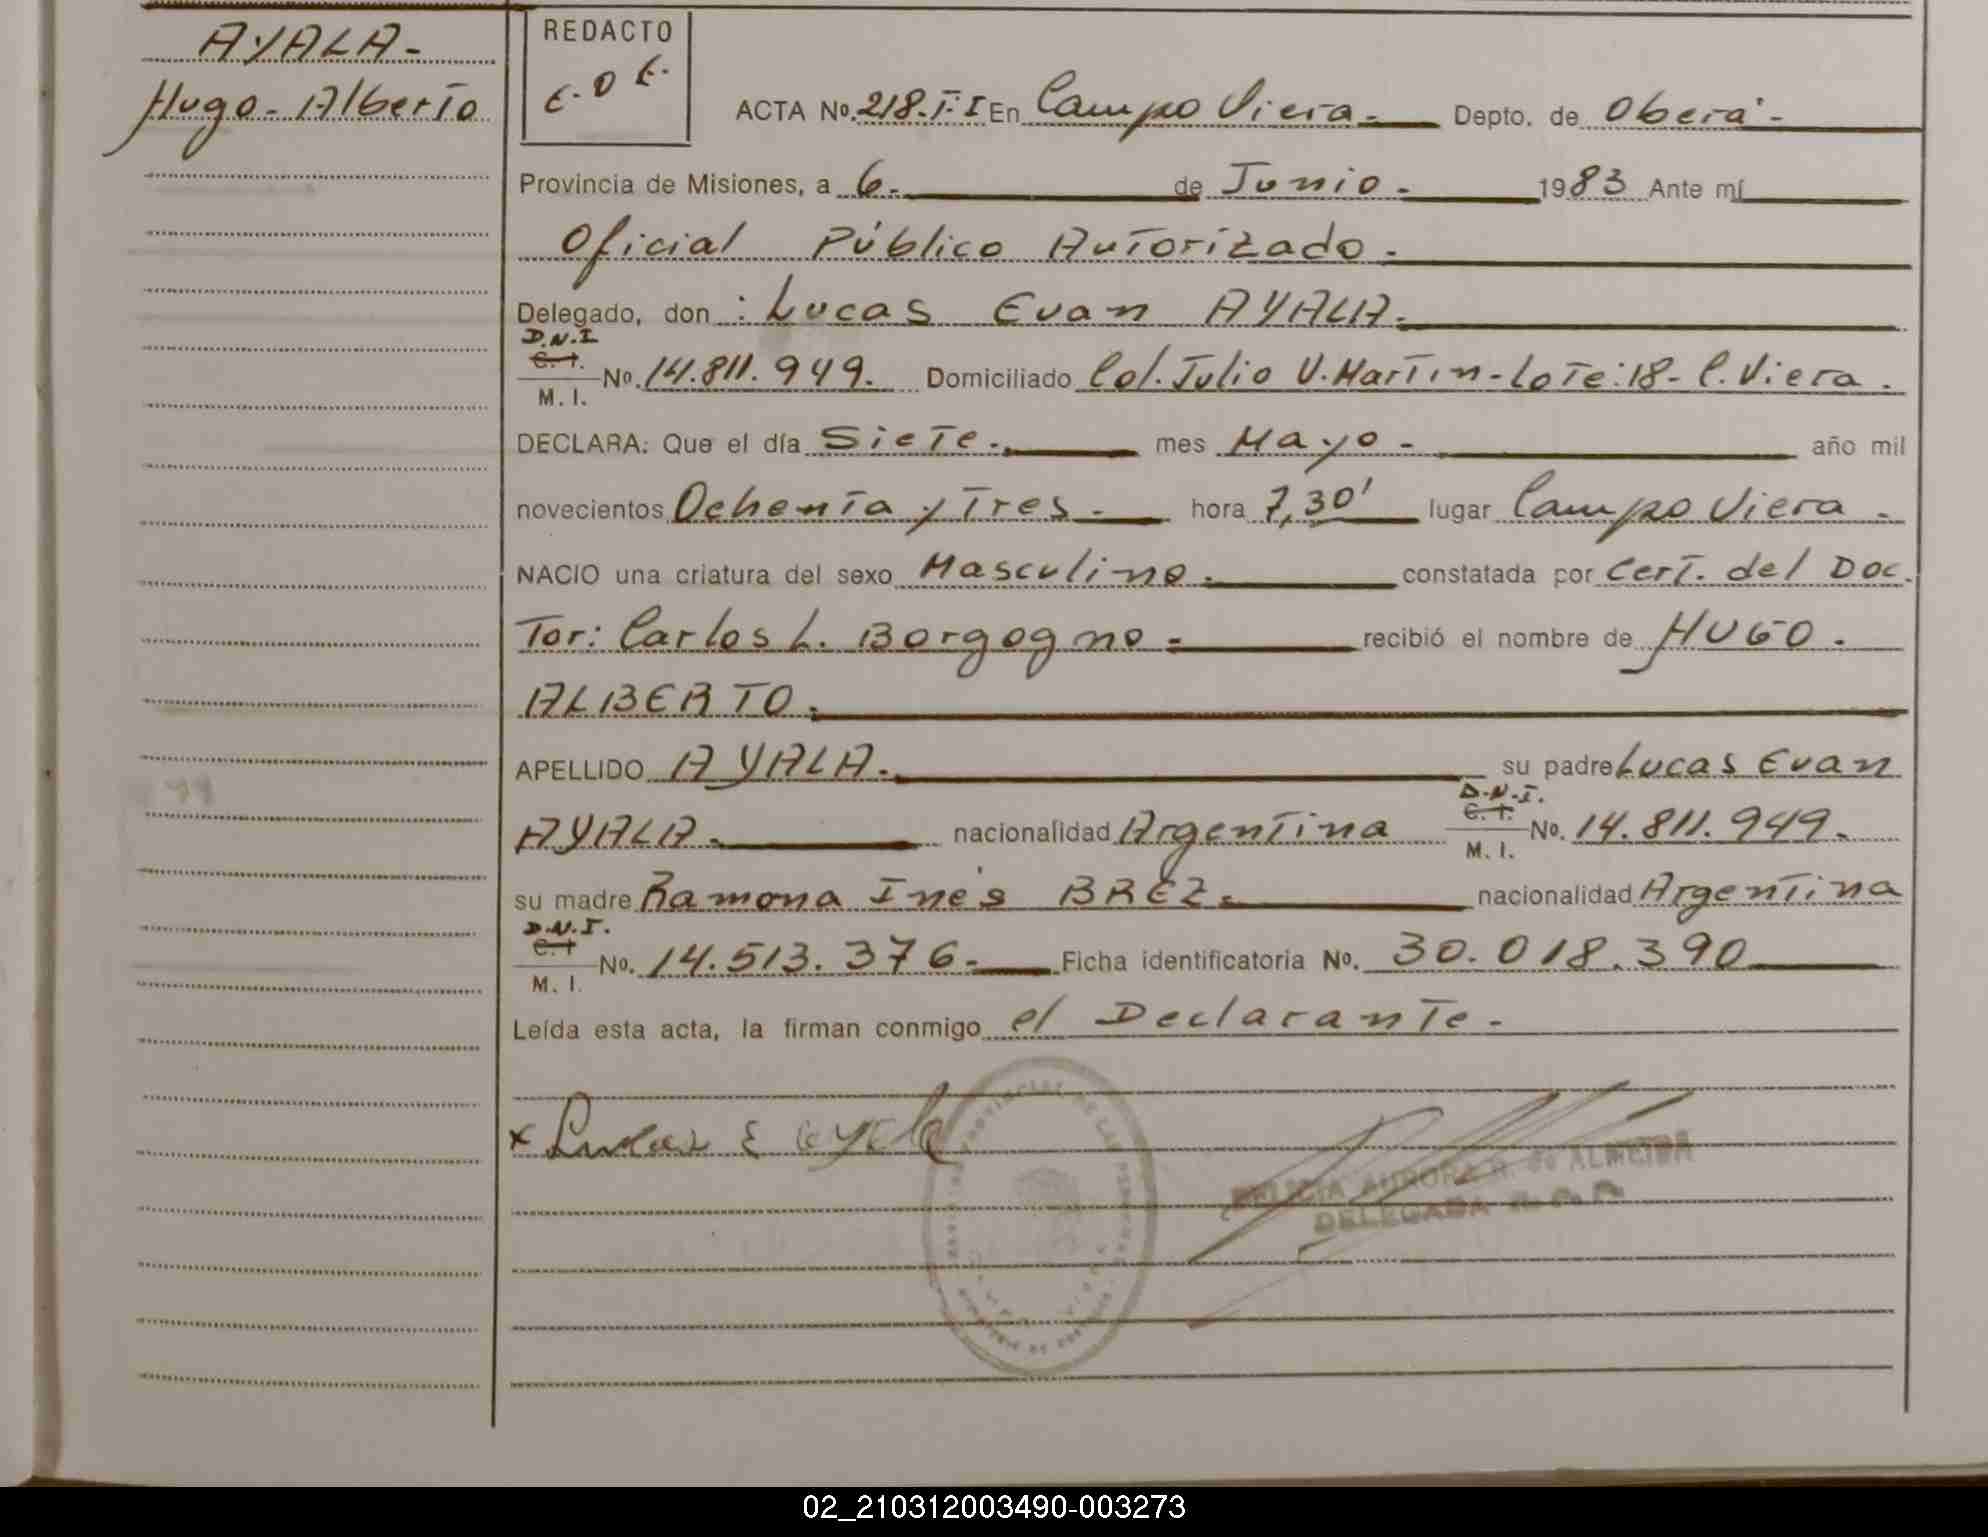 AYALA-
Hugo-Alberto
REDACTO
E. O E.
ACTA No. 218.T:I En Campo Viera.- Depto. de Oberá-
Provincia de Misiones, a 6.- de Junio.- 1983 Ante mí
Oficial Público Autorizado.-
Delegado, don : Lucas Evan AYALA.
D.N.I
C.I.
M. I. No. 14.811.949. Domiciliado Col. Julio U. Martin-Lote:18-C. Viera.
DECLARA: Que el día Siete.- mes Mayo- año mil
novecientos Ochenta y Tres.- hora 7,30' lugar Campo Viera-
NACIO una criatura del sexo Masculino.- constatada por Cert. del Doc.
Tor: Carlos L. Borgogno.- recibió el nombre de HUGO.
ALBERTO.
APELLIDO AYALA. su padre Lucas Evan
AYALA. nacionalidad Argentina D.N.I. C.I. M. I. No. 14.811.949.
su madre Ramona Inés BREZ. nacionalidad Argentina
D.N.I.
C.I
M. I. No. 14.513.376.- Ficha identificatoria No. 30.018.390
Leída esta acta, la firman conmigo el Declarante.-
x Lucas E Ayala
AURORA R. de ALMEIDA
DELEGADA
02_210312003490-003273